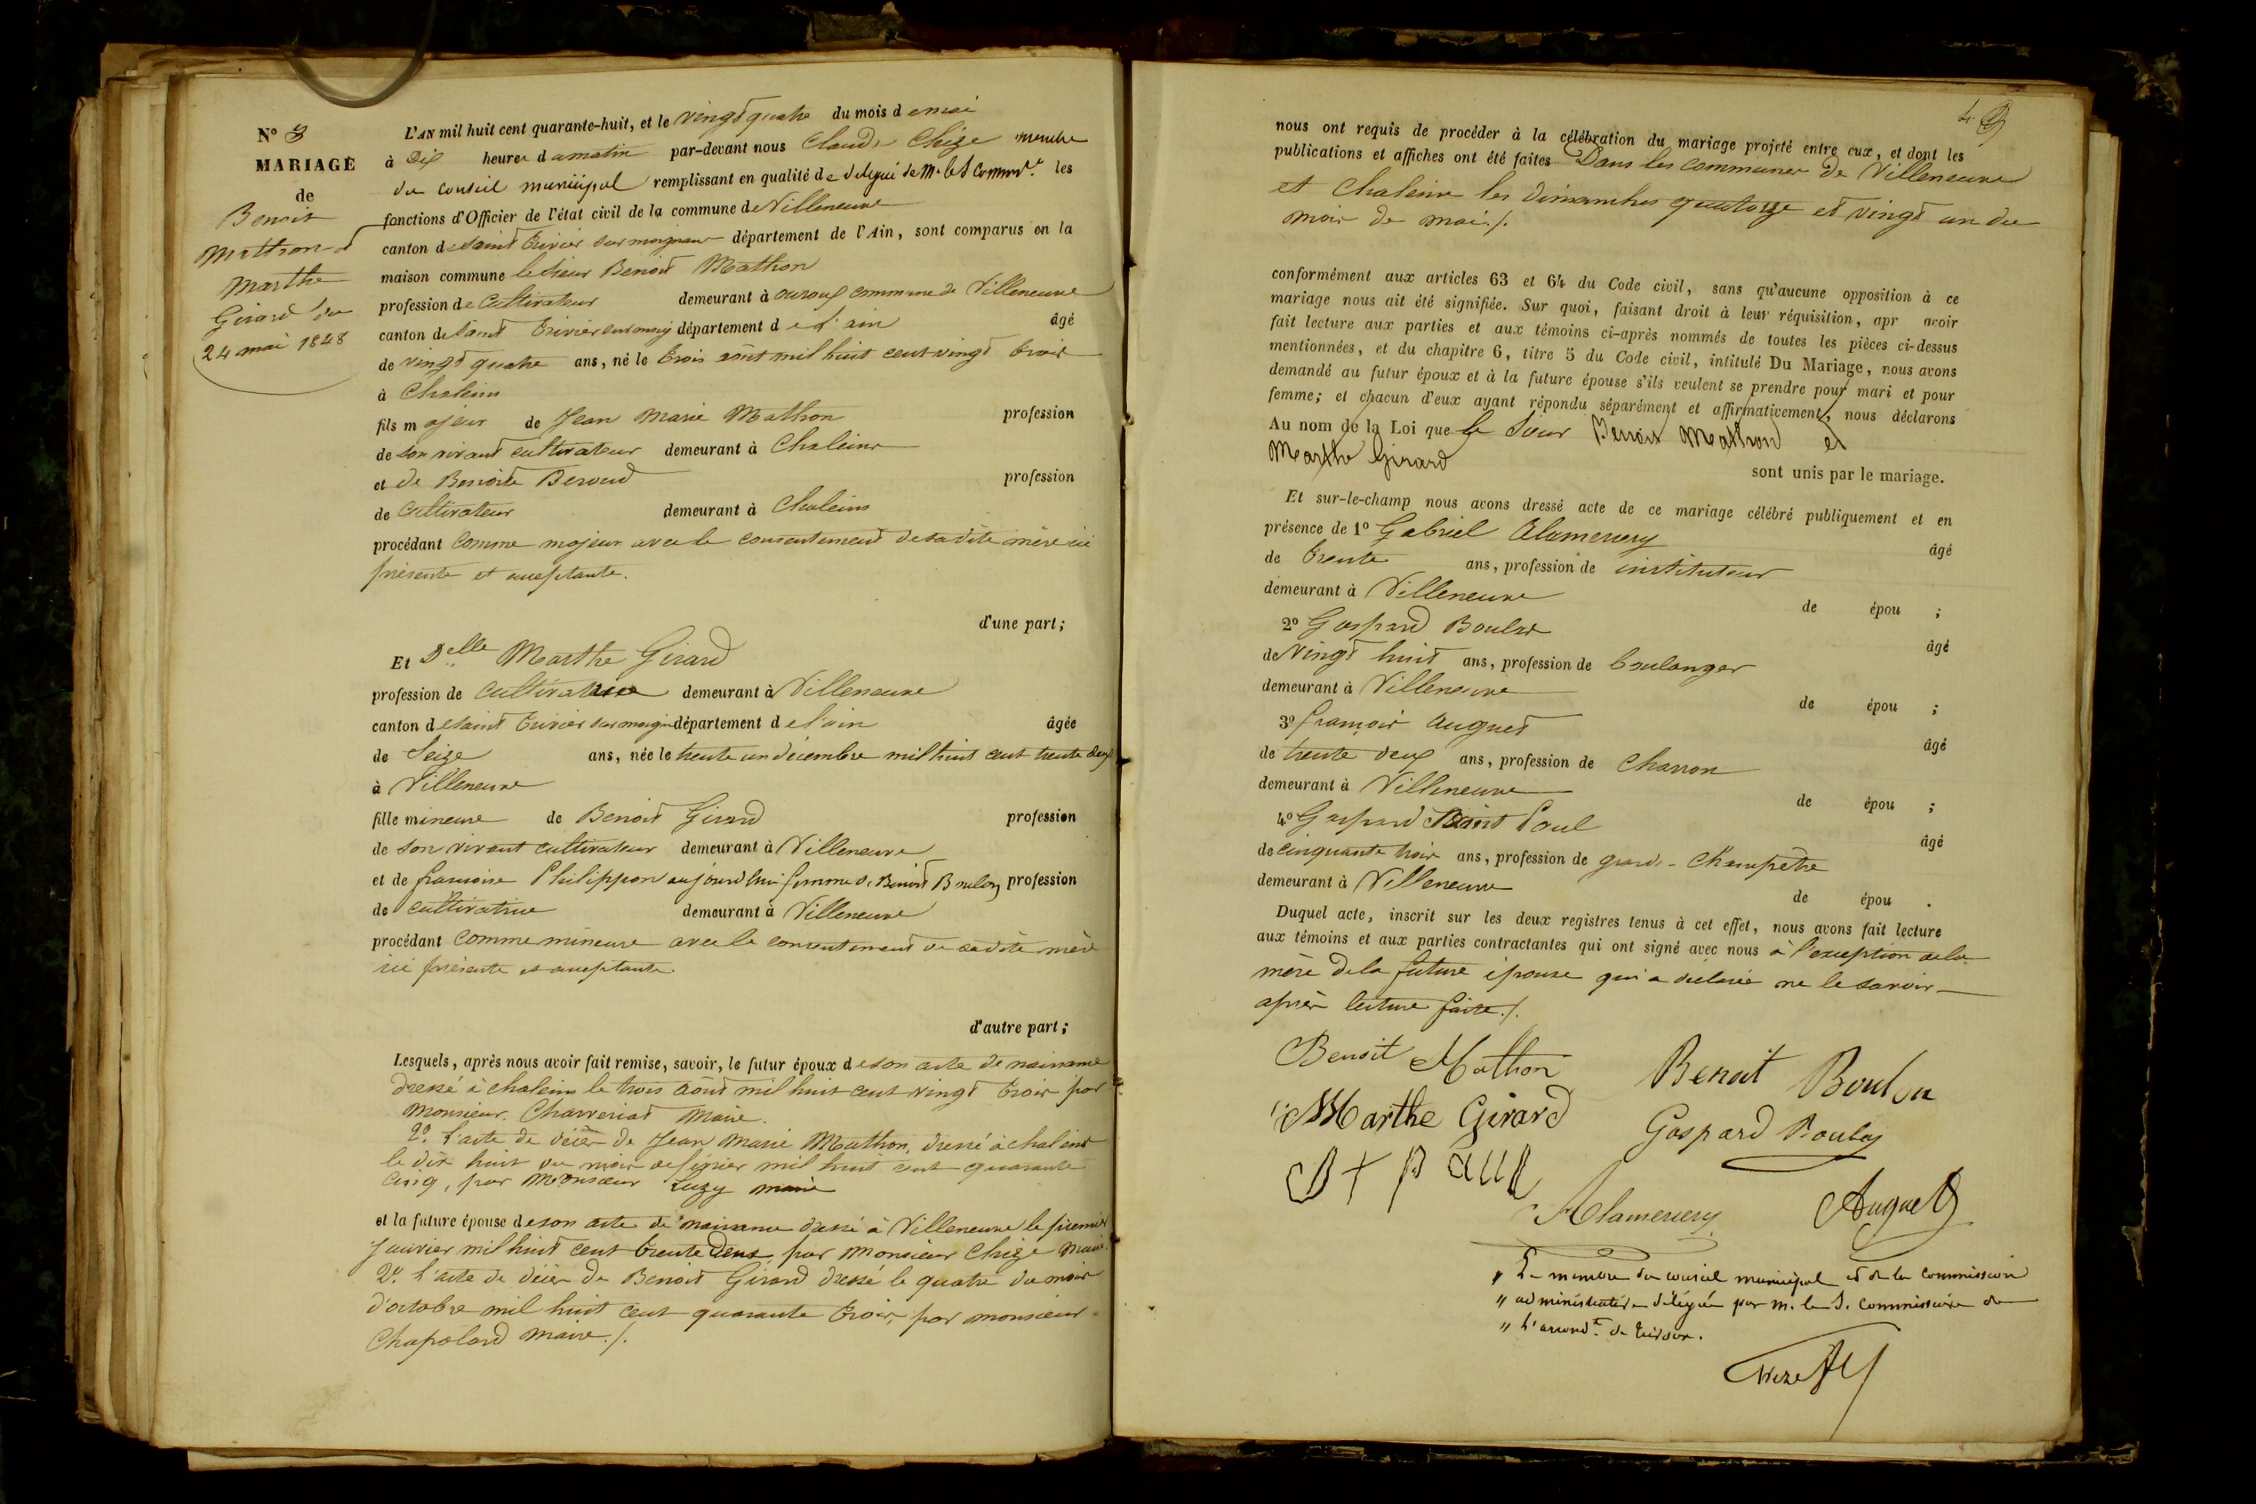 N° 3
MARIAGE
de
Benoit
Mathon et
Marthe
Girard du
24 mai 1848
L'AN mil huit cent quarante-huit, et le vingt quatre du mois de mai
à Dix heures du matin par-devant nous Claude Chize membre
du conseil municipal remplissant en qualité de délégué de M. le S Commre. les
fonctions d'Officier de l'état civil de la commune de Villeneuve
canton de saint trivier sur moignans département de l'Ain, sont comparus en la
maison commune le sieur Benoit Mathon
profession de Cultivateur demeurant à ouroux commune de Villeneuve
canton de saint trivier sur moig département de l'ain âgé
de vingt quatre ans, né le trois août mil huit cent vingt trois
à Chaleins
fils majeur de Jean Marie Mathon profession
de son vivant cultivateur demeurant à Chaleins
et de Benoite Beroud profession
de Cultivateur demeurant à Chaleins
procédant comme majeur avec le consentement de sa dite mère ici
présente et acceptante.
d'une part;
Et Delle Marthe Girard
profession de cultivatrice demeurant à Villeneuve
canton de saint trivier sur moign département de l'ain âgée
de Seize ans, née le trente un décembre mil huit cent trente deux
à Villeneuve
fille mineure de Benoit Girard profession
de son vivant cultivateur demeurant à Villeneuve
et de francoise Philippon aujourd'hui femme de Benoit Boulon profession
de cultivatrice demeurant à Villeneuve
procédant comme mineure avec le consentement de sa dite mère
ici présente et acceptante.
d'autre part;
Lesquels, après nous avoir fait remise, savoir, le futur époux de son acte de naissance
dressé à chaleins le trois août mil huit cent vingt trois par
Monsieur Charreriat Maire.
2° L'acte de décès de Jean Marie Mathon, dressé à chaleins
le dix huit du mois de février mil huit cent quarante
cinq, par Monsieur Luzy maire
et la future épouse de son acte de naissance dressé à Villeneuve le premier
janvier mil huit cent trente deux par Monsieur Chize Maire.
2° L'acte de décès de Benoit Girard dressé le quatre du mois
d'octobre mil huit cent quarante trois, par monsieur
Chapolard Maire./.
nous ont requis de procéder à la célébration du mariage projeté entre eux, et dont les
publications et affiches ont été faites Dans les communes de Villeneuve
et Chaleins les dimanches quatorze et vingt un du
mois de mai./.
conformément aux articles 63 et 64 du Code civil, sans qu'aucune opposition à ce
mariage nous ait été signifiée. Sur quoi, faisant droit à leur réquisition, apr avoir
fait lecture aux parties et aux témoins ci-après nommés de toutes les pièces ci-dessus
mentionnées, et du chapitre 6, titre 5 du Code civil, intitulé Du Mariage, nous avons
demandé au futur époux et à la future épouse s'ils veulent se prendre pour mari et pour
femme; et chacun d'eux ayant répondu séparément et affirmativement, nous déclarons
Au nom de la Loi que le Sieur Benoit Mathon et
Marthe Girard
sont unis par le mariage.
Et sur-le-champ nous avons dressé acte de ce mariage célébré publiquement et en
présence de 1° Gabriel Alamercery âgé
de trente ans, profession de instituteur
demeurant à Villeneuve de épou ;
2° Gaspard Boulas âgé
de Vingt huit ans, profession de boulanger
demeurant à Villeneuve de épou ;
3° françois Auguet âgé
de trente deux ans, profession de Charron
demeurant à Villeneuve de épou ;
4° Gaspard Saint Paul âgé
de cinquante trois ans, profession de garde-Champêtre
demeurant à Villeneuve de épou .
Duquel acte, inscrit sur les deux registres tenus à cet effet, nous avons fait lecture
aux témoins et aux parties contractantes qui ont signé avec nous à l'exception de la
mère de la future épouse qui a déclarée ne le savoir
après lecture faite./.
Benoit Mathon
Benoit Boulon
Marthe Girard
Gaspard Boulas
St paul
Alamercery
Auguet
" Le membre du conseil municipal et de la commission
" administrative délégué par m. le S. Commissaire de
" L'arrondt. de trévoux.
Chize